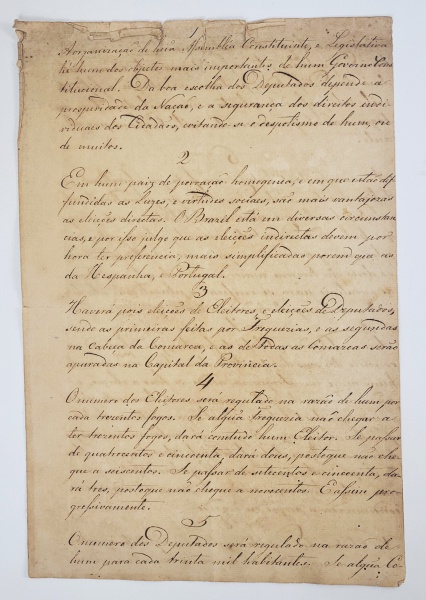 1
A organização de húa Assembléa Constituinte, e Legislativa
hé hum dos objectos mais importantes de hum Governo Cons
titucional. Da boa escolha dos Deputados depende a
prosperidade da Nação, e a segurança dos direitos indi-
viduaes dos Cidadãos, evitando-se o despotismo de hum, ou
de muitos.
2
Em hum paiz de povoação homogenea, e em que estão dif-
fundidas as Luzes, e virtudes sociaes, são mais vantajosas
as eleições directas. O Brazil está em diversas circumstan
cias, e por isso julgo que as eleições indirectas devem por
hora ter preferencia, mais simplificadas porem que as
da Hespanha, e Portugal.
3
Haverá pois eleições de Eleitores, e eleições de Deputados,
sendo as primeiras feitas por Freguezias, e as segundas
na Cabeça da Comarca, e as de todas as Comarcas serão
apuradas na Capital da Provincia.
4
O numero dos Eleitores será regulado na razão de hum por
cada trezentos fogos. Se algúa Freguezia não chegar a
ter trezentos fogos, dará comtudo hum Eleitor. Se passar
de quatrocentos e cincoenta, dará dous, postoque não che-
gue a seiscentos. Se passar de setecentos e cincoenta, da-
rá tres, postoque não chegue a novecentos. E assim pro-
gressivamente.
5
O numero dos Deputados será regulado na razão de
hum para cada trinta mil habitantes. Se algúa Co-